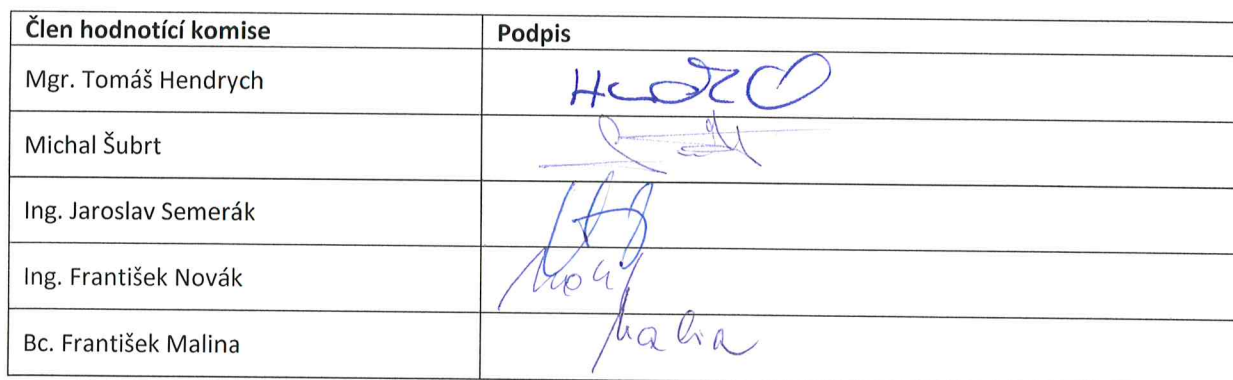 Člen hodnotící komise Podpis
Mgr. Tomáš Hendrych
Michal Šubrt
Ing. Jaroslav Semerák
Ing. František Novák
Bc. František Malina